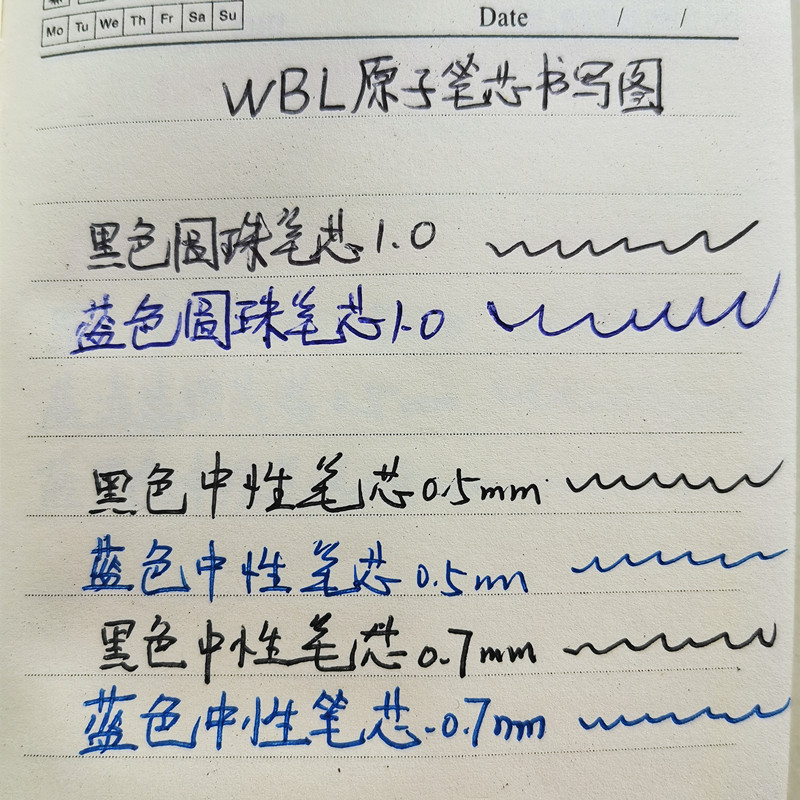 Mo Tu We Th Fr Sa Su
Date / /
WBL原子笔芯书写图
黑色圆珠笔芯1.0
蓝色圆珠笔芯1.0
黑色中性笔芯0.5mm
蓝色中性笔芯0.5mm
黑色中性笔芯0.7mm
蓝色中性笔芯0.7mm